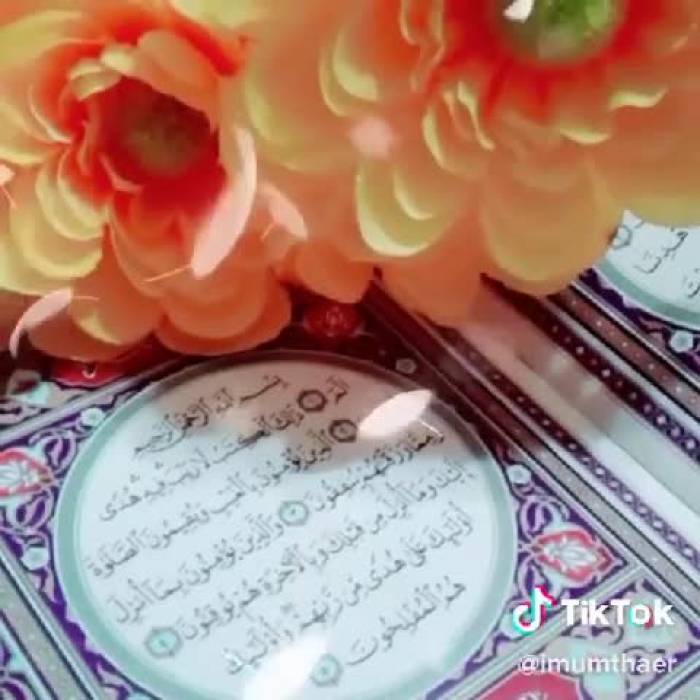 بِسْمِ اللَّهِ الرَّحْمَٰنِ الرَّحِيمِ
الم ١ ذَٰلِكَ الْكِتَابُ لَا رَيْبَ فِيهِ هُدًى
الَّذِينَ يُؤْمِنُونَ بِالْغَيْبِ وَيُقِيمُونَ الصَّلَاةَ
وَمِمَّا رَزَقْنَاهُمْ يُنْفِقُونَ ٣ وَالَّذِينَ يُؤْمِنُونَ بِمَا أُنْزِلَ
إِلَيْكَ وَمَا أُنْزِلَ مِنْ قَبْلِكَ وَبِالْآخِرَةِ هُمْ يُوقِنُونَ ٤
أُولَٰئِكَ عَلَىٰ هُدًى مِنْ رَبِّهِمْ وَأُولَٰئِكَ
هُمُ الْمُفْلِحُونَ ٥
TikTok
@imumthaer